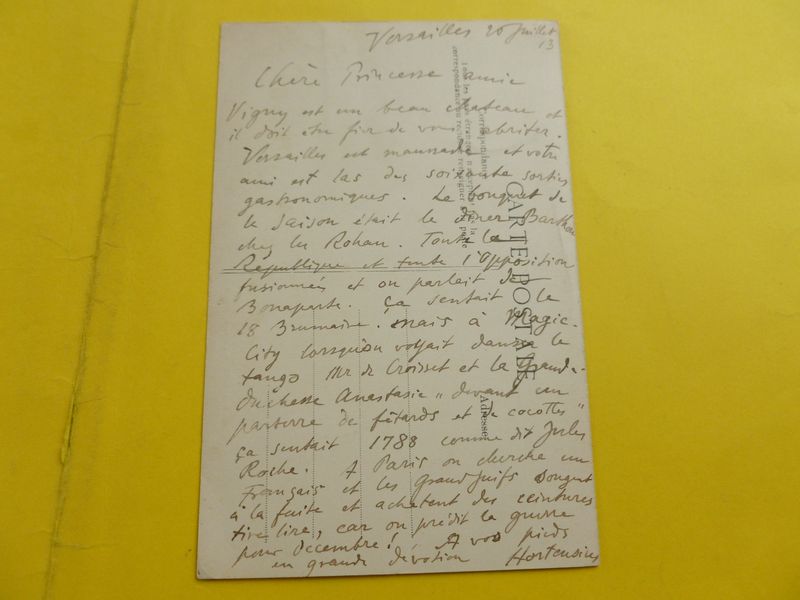 Versailles 20 Juillet
13
Chère Princesse amie
Vigny est un beau chateau et
il doit etre fier de vous abriter.
Versailles est maussade et votre
ami est las des soixante sorties
gastronomiques. Le bouquet de
la saison était le diner Barthou
chez les Rohan. Toute la
République et toute l'opposition
fusionnées et on parlait de
Bonaparte. Ça sentait le
18 Brumaire. Mais à Magic-
City lorsqu'on voyait danser le
tango Mr de Croisset et la Grande-
duchesse Anastasie "devant un
parterre de fêtards et de cocottes"
ça sentait 1788 comme dit Jules
Roche. A Paris on cherche un
Français et les Grands Juifs songent
à la fuite et achetent des ceintures
tire lire, car on prédit la guerre
pour Decembre! A vos pieds
en grande dévotion Hortensius
CARTE POSTALE
Correspondance
Adresse